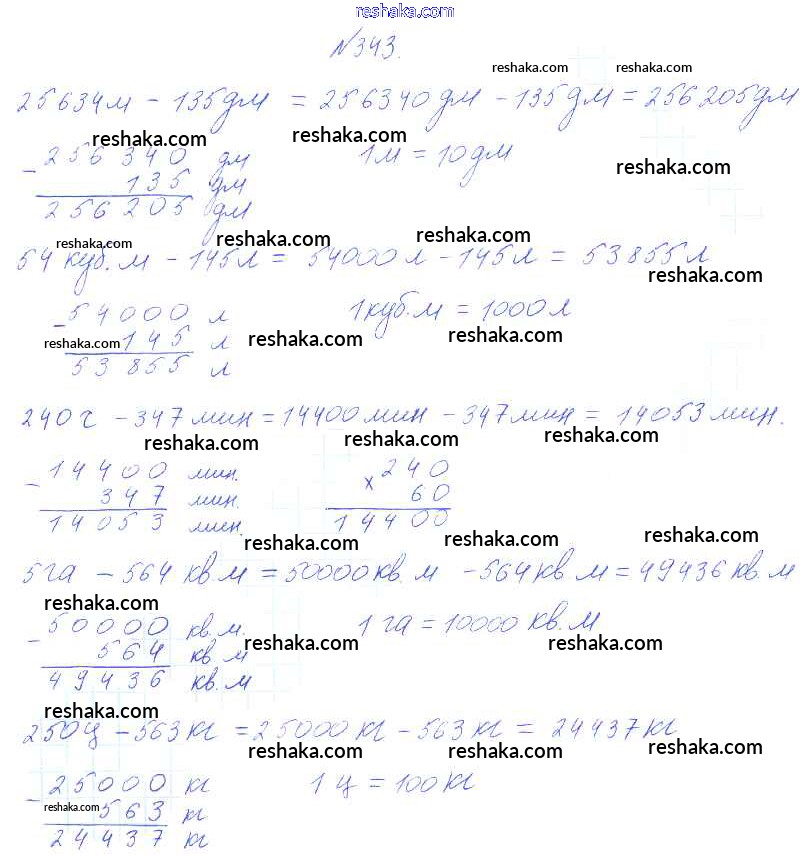 reshaka.com
№343.
reshaka.com reshaka.com
25634м - 135дм = 256340дм - 135дм = 256205дм
reshaka.com reshaka.com
- 256340 дм 1м = 10дм
reshaka.com
135 дм
256205 дм
reshaka.com reshaka.com reshaka.com
54 куб.м - 145л = 54000л - 145л = 53855л
reshaka.com
- 54000 л 1куб.м = 1000л
reshaka.com 145 л reshaka.com reshaka.com
53855 л
240ч - 347мин = 14400мин - 347мин = 14053мин.
reshaka.com reshaka.com reshaka.com
- 14400 мин. × 240
347 мин. 60
14053 мин. 14400
reshaka.com reshaka.com reshaka.com
5га - 564 кв.м = 50000кв.м - 564кв.м = 49436кв.м
reshaka.com
- 50000 кв.м. 1га = 10000 кв.м
reshaka.com reshaka.com
564 кв.м
49436 кв.м
reshaka.com
250ц - 563кг = 25000кг - 563кг = 24437кг
reshaka.com reshaka.com reshaka.com
- 25000 кг 1ц = 100кг
reshaka.com 563 кг
24437 кг